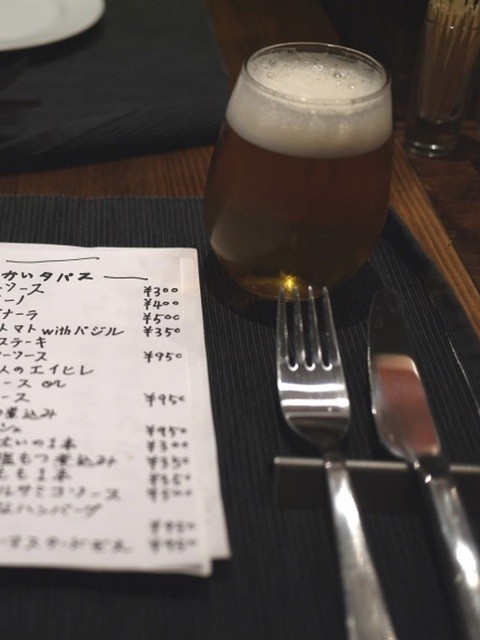 かい タパス
ーソース ¥300
ーノ ¥400
ナーラ ¥500
トマト with バジル ¥350
ステーキ
ーソース ¥950
人のエイヒレ
ース or
ース ¥950
煮込み
¥950
いの1本 ¥300
塩もつ煮込み ¥350
もも1本 ¥350
ルサミコソース ¥500
なハンバーグ
¥950
¥950